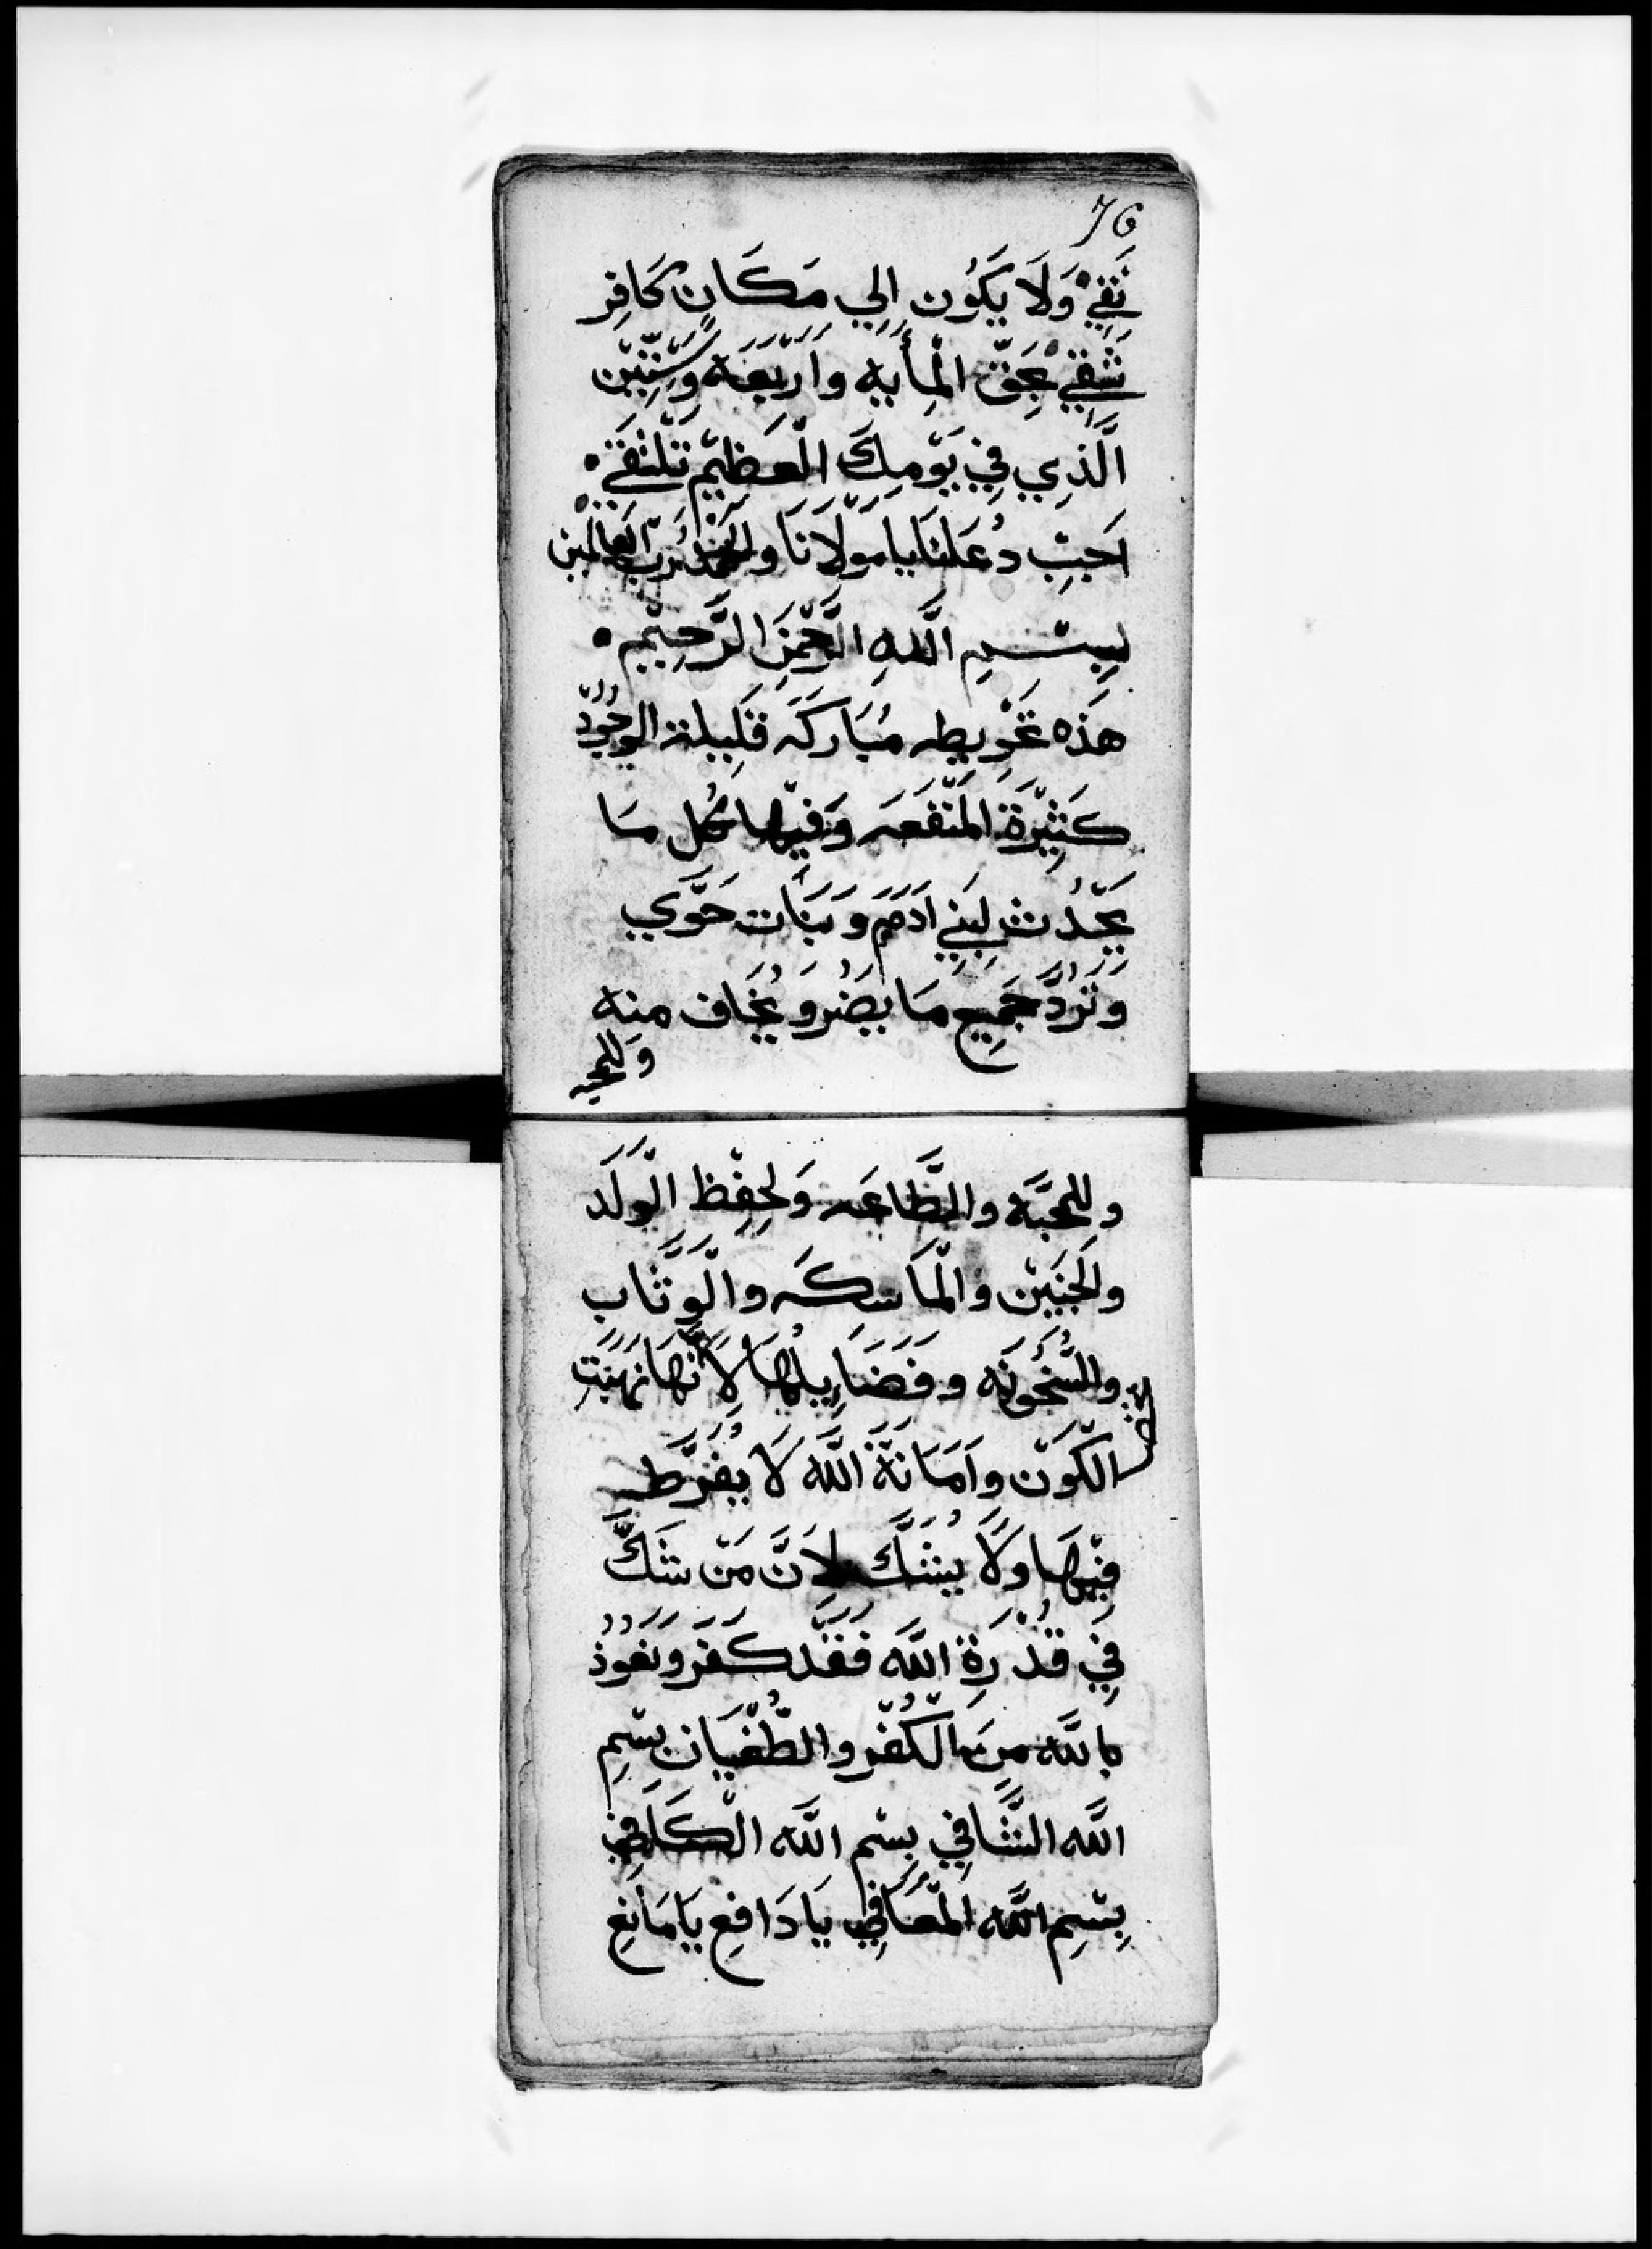 76
نَقِيّ وَلَا يَكُون الِي مَكَانِ كَافِر
شَقِيّ بِحَقّ المِأيه وارَبَعَة وَسِتِّيْن
الَّذِي فِي يَوْمِكَ الْعَظِيْم نَلْتَقَيْ
اَجِبْ دُعَانَا يا مَوْلَانَا والحمْدُ لله رَبّ العالمين
بِسْمِ اللَّهِ الرَّحْمَنِ الرَّحِيْمِ
هَذه تَحْوِيطه مُبَارَكَه قَلِيلة الوجُودْ
كَثِيْرَة الْمَنْفَعَه وَفِيْها كُل مَا
يَحْدُث لِبَنِي اَدَمَ وَبَنَات حَوَّي
وَتَرُدَّ جَمِيع مَا يَضُر وَيُخَاف منه
وَللمحبه
وللمحبَّة والطَّاعَه وَلحِفْظ الْوَلَد
والجَنِيْن والْمَاسِكَه والْوَثَّاب
والسُّخُونَه وفَضَايلها لاَنَّهَا
الْكَوْن وامَانَةْ اللَّه لَا يفَرَّط
فِيْهَا وَلَا يُشَكَّ لِاَنَّ مَنْ شَكَّ
فِي قُدْرَة اللَّه فَقَد كَفَر ونَعُوذُ
باللَّه مِنَ الْكُفْر والطُّغْيَان بِسْمِ
اللَّه الشَّافِي بِسْم اللَّه الْكَافِي
بِسْمِ اللَّه الْمُعَافِي يَا دَافِع يَا مَانِع